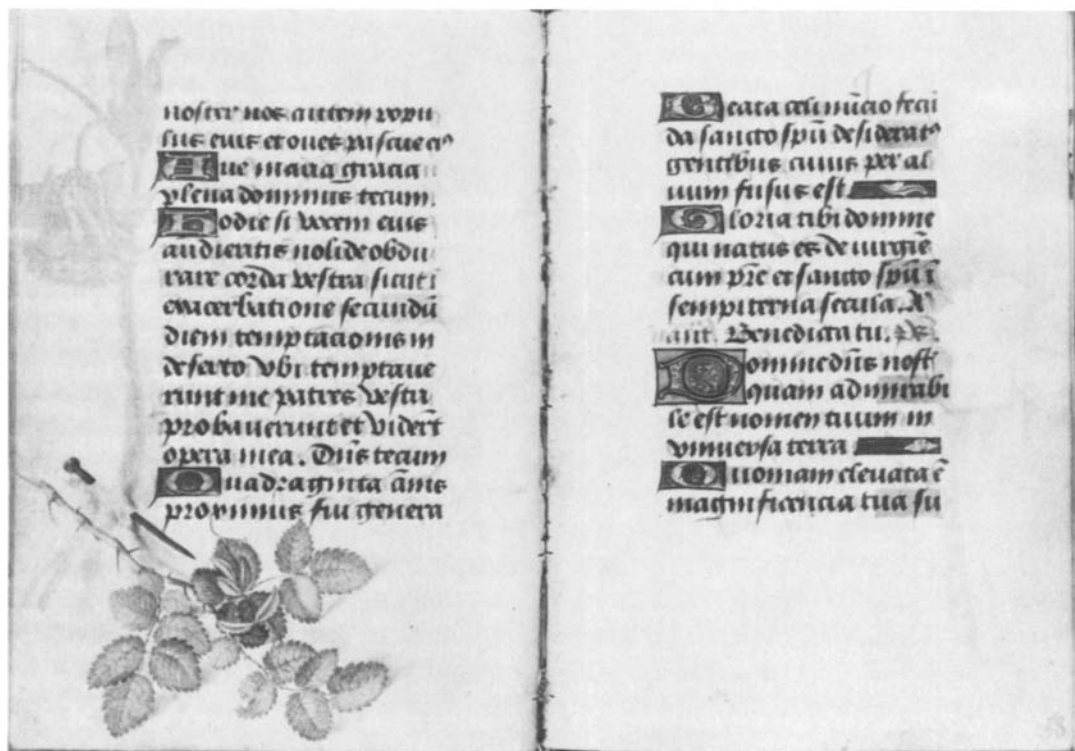 noster nos autem popu
lus eius et oves pascue ei⁹
Ave maria gracia
plena dominus tecum.
Hodie si vocem eius
audieritis nolite obdu
rare corda vestra sicut ī
exacerbatione secundū
diem temptacionis in
deserto vbi temptave
runt me patres vestri
probaverunt et viderūt
opera mea. Dn̄s tecum
Quadraginta annis
proximus fui genera
Beata celi nūcio fecū
da sancto spū desiderat⁹
gentibus cuius per al
vum fusus est
Gloria tibi domine
qui natus es de virgiē
cum pr̄e et sancto spū ī
sempiterna secula. A
añt. Benedicta tu. Ps.
Domine dn̄s nost̄
quam admirabi
le est nomen tuum in
vniversa terra
Quoniam elevata ē
magnificencia tua su